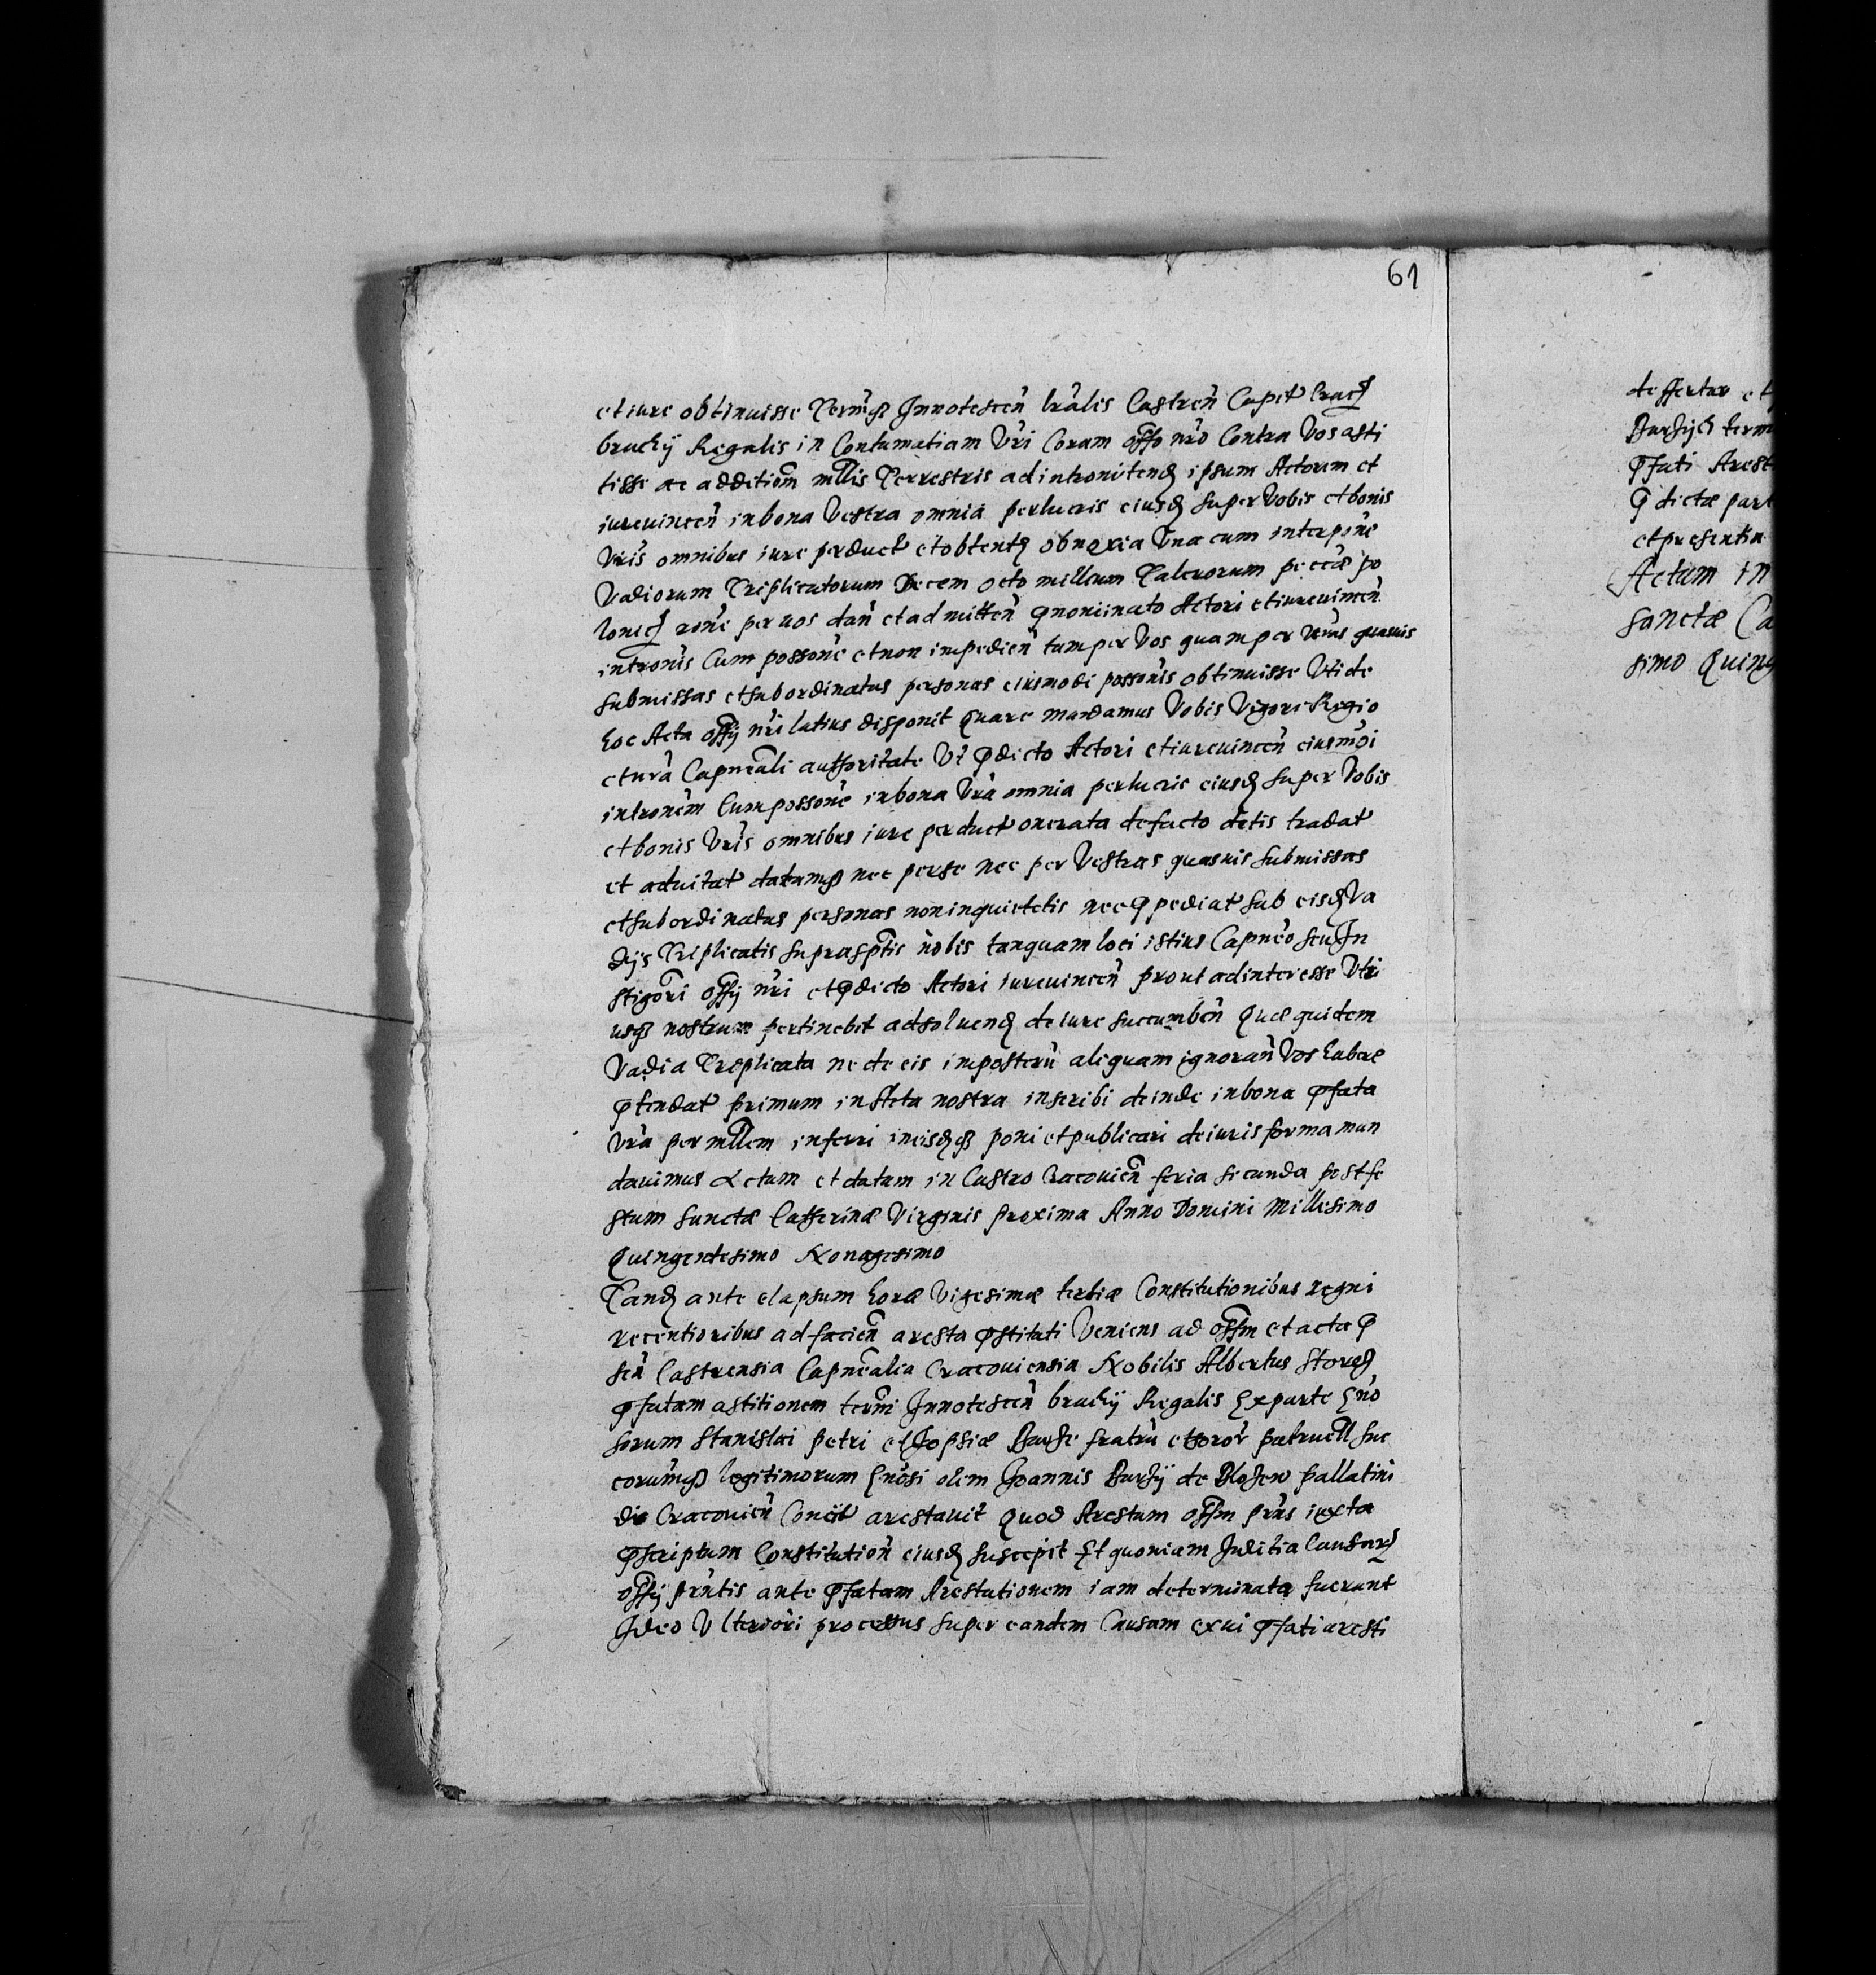 61
et iure obtinuisse Termīq Innotescen̄ lrālis Castren̄ Capit Crac
brachÿ Regalis in Contumatiam Vr̄i Coram offo nr̄o Contra Vos asti
tisse ac additiom̄ mllis Terrestris ad intromitend ipsum Actorem et
iureuincen̄ in bona Vestra omnia per lucris eiusd super Vobis et bonis
Vr̄is omnibus iure perduct et obtent obnoxia Vna cum interpōne
Vadiorum Triplicatorum Decem octo millium Talerorum peccæ po
lonic rōne per uos dan̄ et admitten̄ pnominato Actori et iureuincen̄
intromis Cum possōne et non impedien̄ tam per Vos quam per Vr̄as quasuis
submissas et subordinatas personas eiusmodi possōnis obtinuisse Vti de
hoc Acta offÿ nr̄i latius disponit Quare mandamus Vobis Vigore Regio
et nr̄a Capneāli authoritate Vt pdicto Actori et iureuincen̄ eiusmōi
intronēm Cum possōne in bona Vr̄a omnia per lucris eiusd super Vobis
et bonis Vr̄is omnibus iure perduct onerata de facto detis tradat
et aduitat datamq nec per se nec per Vestras quasuis submissas
et subordinatas personas non inquietetis nec pediat sub eisd Va
dÿs Triplicatis suprasptis nobis tanquam loci istius Capnēo seu In
stigōri offÿ nr̄i et pdicto Actori iureuincen̄ prout ad interesse Vtri
usq nostrum pertinebit ad soluend de iure succumben̄ Quæ quidem
Vadia Treplicata ne de eis imposterū aliquam ignoran̄ Vos habere
ptendat primum in Acta nostra inscribi deinde in bona pfata
Vr̄a per mllem inferri ineisdq poni et publicari de iuris forma man
dauimus Actum et datum in Castro Cracouien̄ feria secunda post fe
stum sanctæ Catherinæ Virginis proxima Anno Domini Millesimo
Quingentesimo Nonagesimo
Tand ante elapsum horæ Vigesimæ tertiæ Constitutionibus regni
recentioribus ad facien̄ aresta pstituti Veniens ad offm et acta p
sen̄ Castrensia Capnealia Cracouiensia Nobilis Albertus
pfatam astitionem termi Innotescen̄ brachÿ Regalis Ex parte Gn̄o
sorum Stanislai Petri et Zophiæ fratrū et soror patruell suc
corumq legitimorum Gnōsi olim Joannis de pallatini
dis Cracouien̄ Concit arestauit Quod Arestum offm prn̄s iuxta
pscriptum Constitution̄ eiusd suscepit Et quoniam Juditia Causar
offÿ prn̄tis ante pfatam Arestationem iam determinata fuerunt
Ideo Vlteriori processus super eandem Causam ex ui pfati aresti
deffertur
term
pfati Arest
p dictæ part
et presentia
Actum in
sanctæ Ca
simo Quing